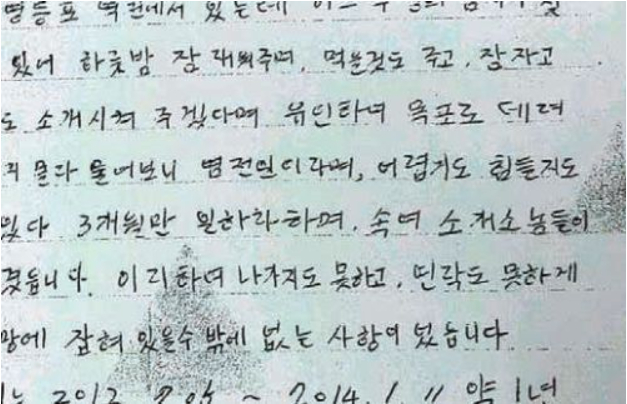 영등포 역전에서 있는데
있어 하룻밤 잠 재워주며, 먹을것도 주고, 잠자고
도 소개시켜 주겠다며 유인하녀 목포로 데려
물다 물어보니 염전일이라며, 어렵지도 힘들지도
있다 3개월만 일하라 하며, 속여 소개소 놈들이
겼읍니다. 이리하여 나가지도 못하고, 연락도 못하게
망에 잡혀 있을수 밖에 없는 사항이 었읍니다.
는 2012 ~ 2014. 1. 11 약 1년